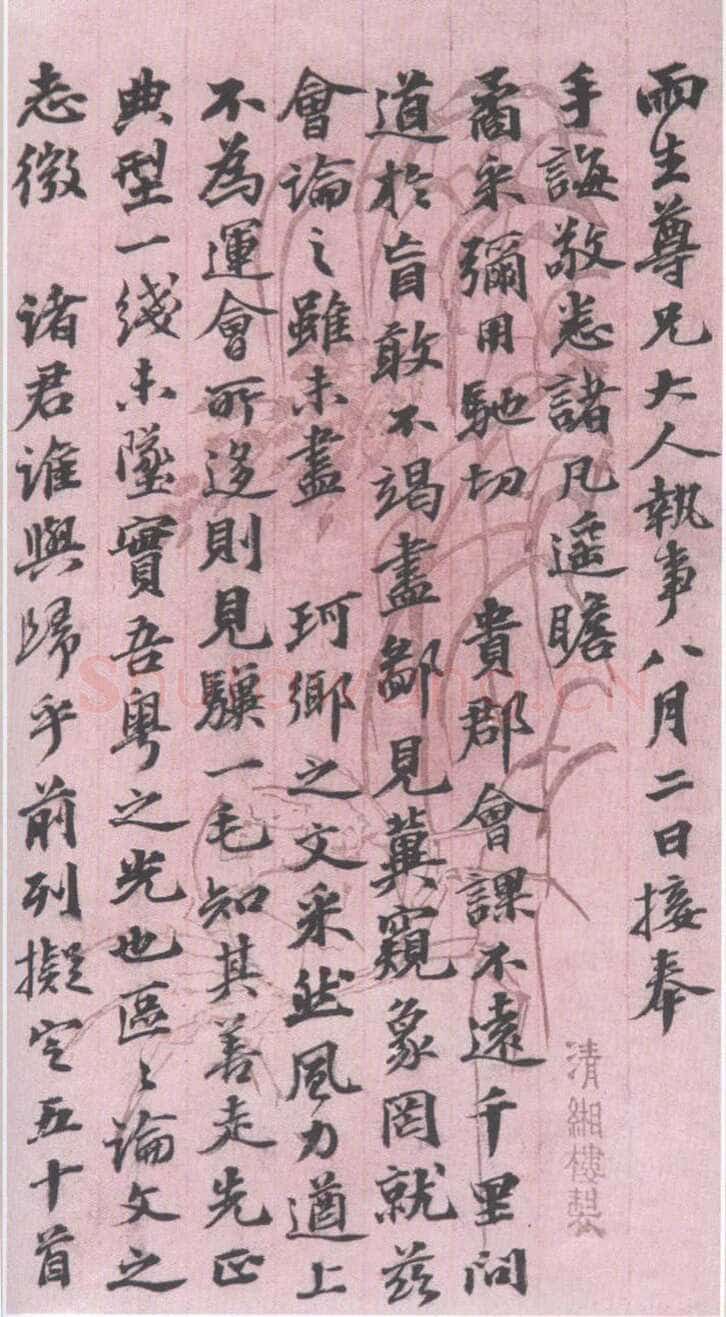 雨生尊兄大人執事八月二日接奉
手誨敬悉諸凡遥瞻
矞采彌用馳切　貴郡會課不遠千里問
道於盲敢不竭盡鄙見冀窺象罔就茲
會論之雖未盡　珂鄉之文采然風力遒上
不為運會所迻則見驥一毛知其善走先正
典型一綫未墜實吾粵之光也區〻論文之
志微　诸君谁與歸乎前列擬定五十首
清緗樓製
Shufawang.CN